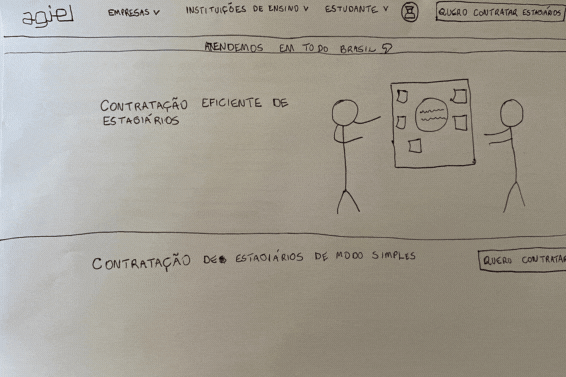 agiel
EMPRESAS v
INSTITUIÇÕES DE ENSINO v
ESTUDANTE v
QUERO CONTRATAR ESTAGIÁRIOS
ATENDEMOS EM TODO BRASIL
CONTRATAÇÃO EFICIENTE DE
ESTAGIÁRIOS
CONTRATAÇÃO DE ESTAGIÁRIOS DE MODO SIMPLES
QUERO CONTRATAR